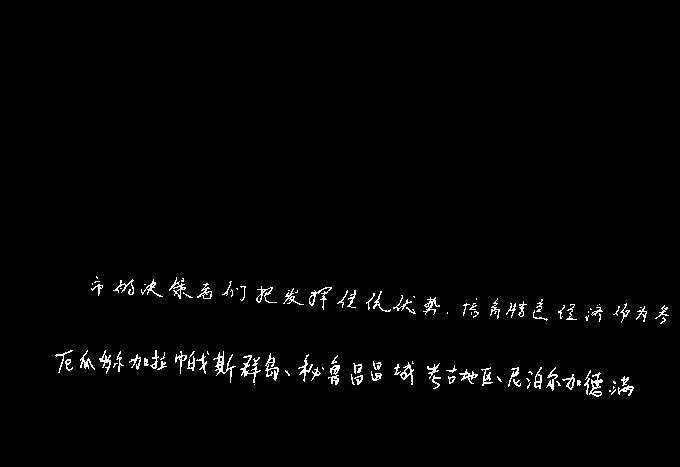 市的决策者们把发挥传统优势、培育特色经济作为参
厄瓜多尔加拉帕戈斯群岛、秘鲁昌昌城考古地区、尼泊尔加德满